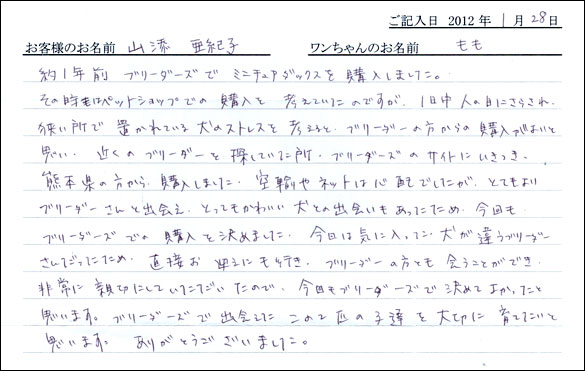 ご記入日 2012 年 1 月 28 日
お客様のお名前 山添 亜紀子 ワンちゃんのお名前 もも
約1年前 ブリーダーズで ミニチュアダックスを購入しました。
その時もはペットショップでの購入を考えていたのですが、1日中人の目にさらされ、
狭い所で置かれている犬のストレスを考えると、ブリーダーの方からの購入がよいと
思い、近くのブリーダーを探していた所、ブリーダーズのサイトにいきつき、
熊本県の方から購入しました。空輸やネットは心配でしたが、とてもよい
ブリーダーさんと出会え、とってもかわいい犬との出会いもあったため、今回も
ブリーダーズでの購入を決めました。今回は気に入った犬が違うブリーダー
さんだったため、直接お迎えにも行き、ブリーダーの方とも会うことができ、
非常に親切にしていただいたので、今回もブリーダーズで決めてよかったと
思います。ブリーダーズで出会えたこの2匹の子達を大切に育てたいと
思います。ありがとうございました。